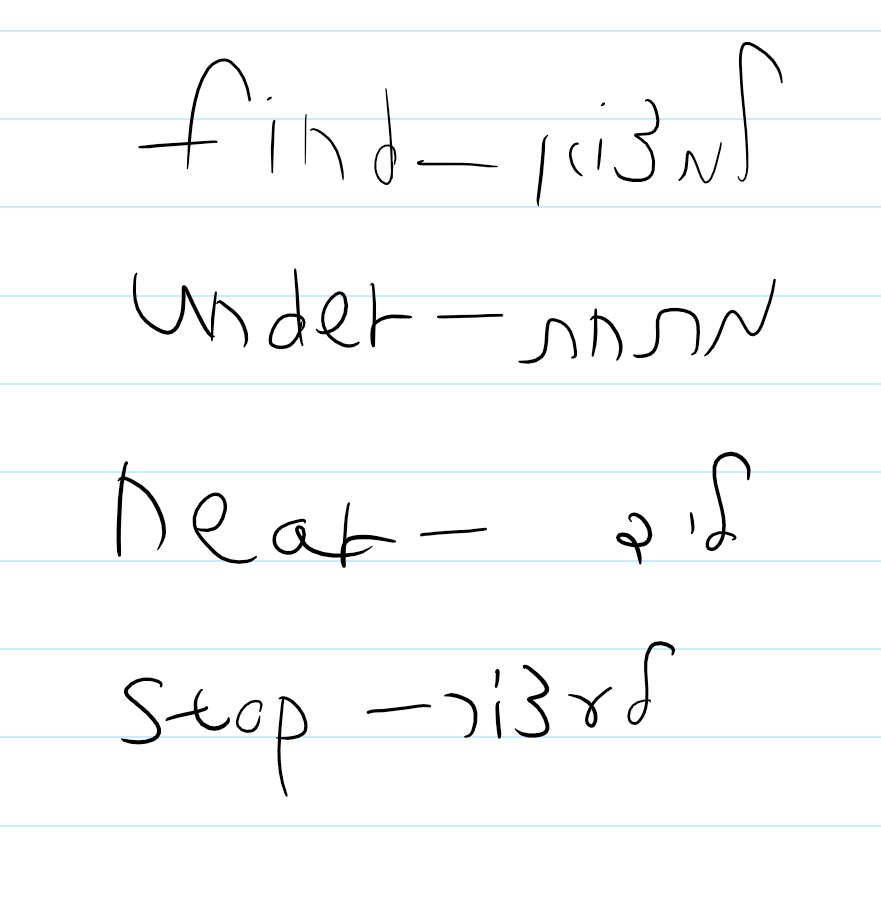 find – למצוא
under – מתחת
near – ליד
stop – לעצור